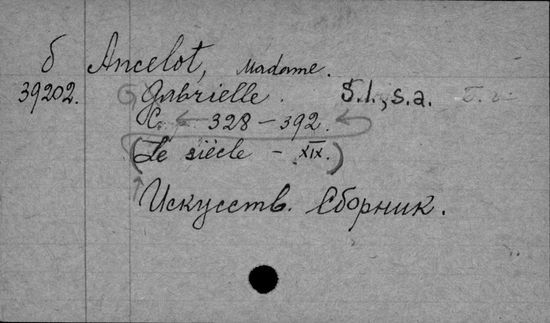 б Ancelot, Madame.
39202. Gabrielle. S.l., s.a.
С. 328 – 392.
(Le siècle – XIX.)
Искусств. Сборник.